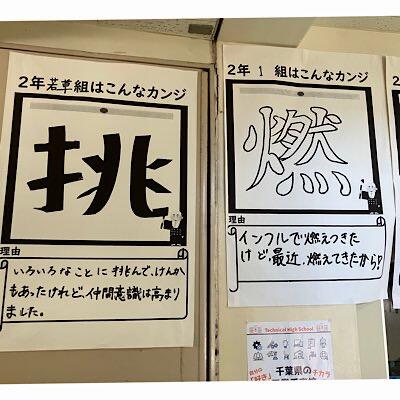 2年若草組はこんなカンジ
挑
理由
いろいろなことに挑んで、けんか
もあったけれど、仲間意識は高まり
ました。
2年 1 組はこんなカンジ
燃
理由
インフルで燃えつきた
けど最近、燃えてきたから!
Technical High School
千葉県の
チカラ